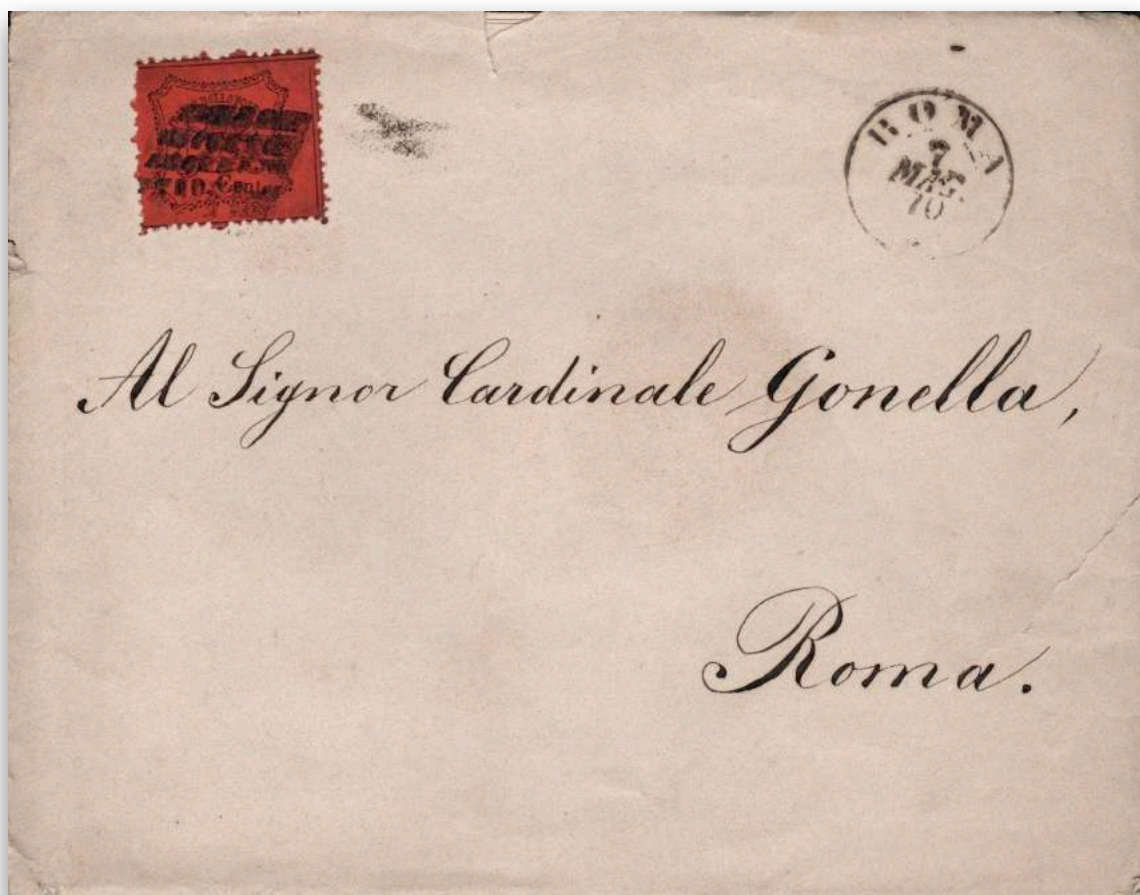 ROMA
7
MAG.
70
Al Signor Cardinale Gonella,
Roma.